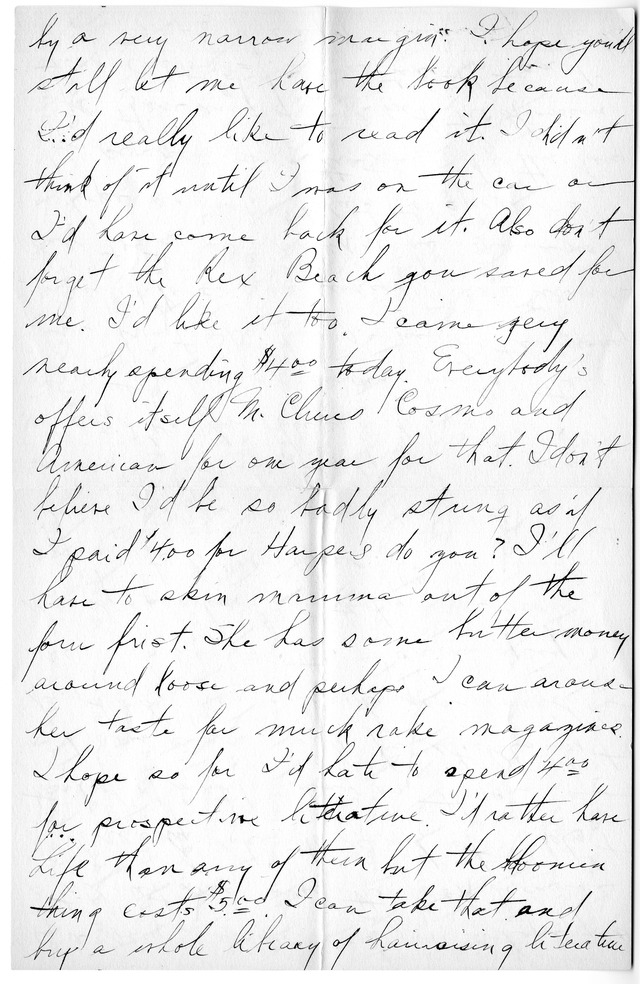 by a very narrow margin." I hope you'll
still let me have the book because
I'd really like to read it. I didn't
think of it until I was on the car or
I'd have come back for it. Also don't
forget the Rex Beach you saved for
me. I'd like it too. I came very
nearly spending $4.00 today. Everybody's
offers itself Mc Clures Cosmo and
American for one year for that. I don't
believe I'd be so badly stung as if
I paid 4.00 for Harpers do you? I'll
have to skin mamma out of the
four frist. She has some butter money
around loose and perhaps I can arouse
her taste for muck rake magazines.
I hope so for I'd hate to spend 4.00
for prospective literature. I'd rather have
Life than any of them but the
thing costs $5.00. I can take that and
buy a whole library of hairraising literature